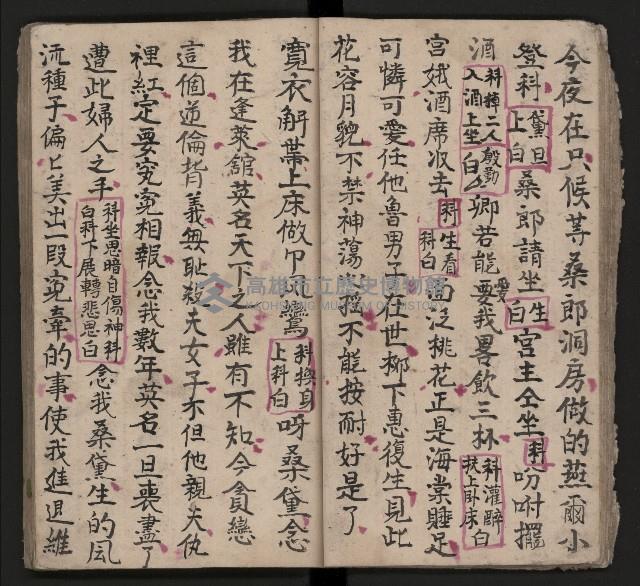 今夜在只候等桑郎洞房做的燕爾小
登科 黛旦上白 桑郎請坐 生白 宮主仝坐 科 吩咐擺
酒 科揮二人殷勤入酒上坐白 卿若能愛要我畧飲三杯 科灌醉扶上臥床白
宮娥酒席收去 科生看科白 面泛桃花正是海棠睡足
可憐可愛任他魯男子在世柳下惠復生見此
花容月貌不禁神蕩 不能按耐好是了
寬衣解帶上床做 鸞 科換身上科白 呀桑黛念
我在蓬萊館英名天下之人雖有不知今貪戀
這個逆倫背義無恥殺夫女子不但他親夫仇
裡紅定要究寃相報念我數年英名一旦喪盡了
遭此婦人之手 科坐思暗自傷神科白科下展轉悲思白 念我桑黛生的風
流種子偏匕美出一段寃牽的事使我進退維
高雄市立歷史博物館
KAOHSIUNG MUSEUM OF HISTORY